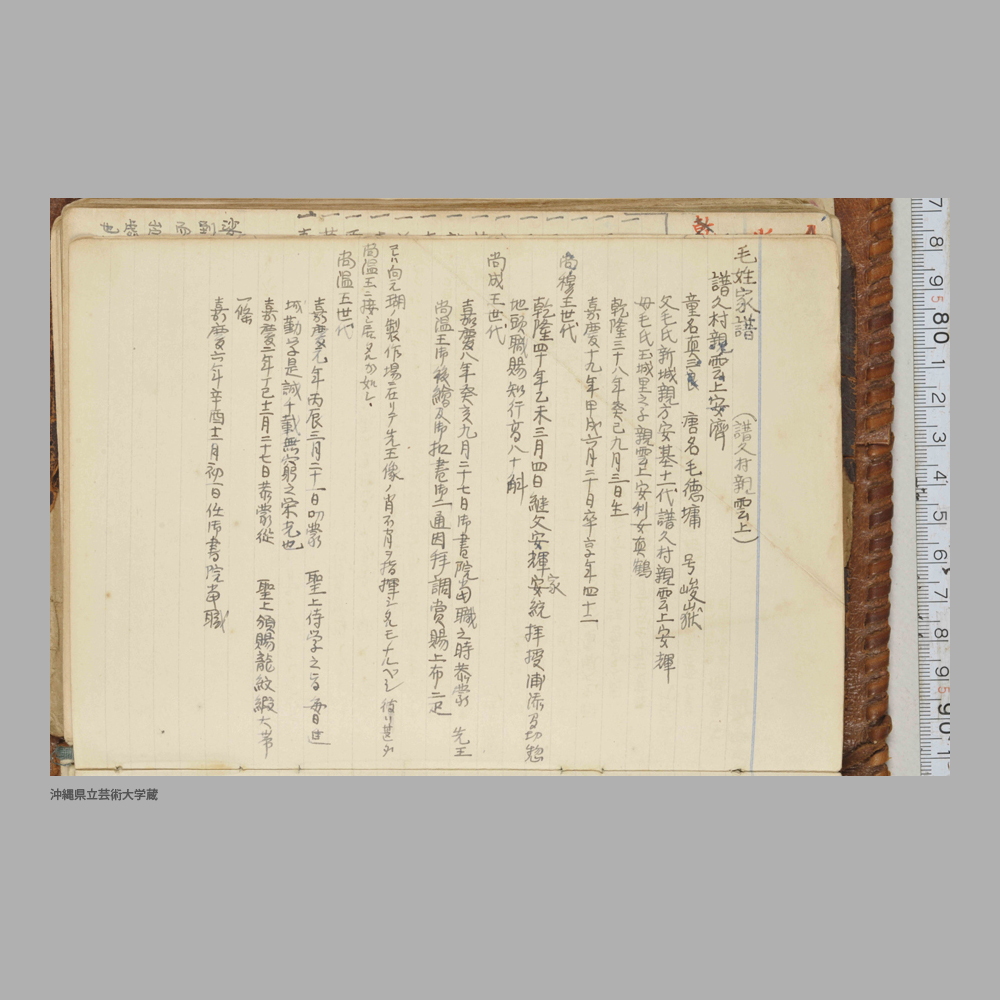 毛姓家譜
(譜久村親雲上)
譜久村親雲上安濟
童名真三良 唐名毛德墉 号峻嶽
父毛氏新城親方安基十一代譜久村親雲上安輝
母毛氏玉城里之子親雲上安利女真鶴
乾隆三十八年癸巳九月三日生
嘉慶十九年甲戌六月二十日卒享年四十二
尚穆王世代
乾隆四十年乙未三月四日継父安輝家統拝授浦添間切惣
地頭職賜知行高八十斛
尚成王世代
嘉慶八年癸亥九月二十七日御書院當職之時恭蒙 先王
尚温王御後繪及御扣書御二通因拝調賞賜上布二疋
尚元瑚ノ製作場ニ在リテ先王像ノ肖不肖ヲ指揮シタモノナルベシ 彼ハ甚ダ
尚温王ニ接シ居タが如し、
尚温王世代
嘉慶元年丙辰三月二十一日叨蒙 聖上侍学之 毎日進
城勤学是誠千載無窮之栄光也
嘉慶二年丁巳十二月二十七日恭蒙從 聖上頒賜龍紋緞大帯
一條
嘉慶六年辛酉十二月初一日任御書院當職
7 8 9 80 1 2 3 4 5 6 7 8 9 90 1
沖縄県立芸術大学蔵